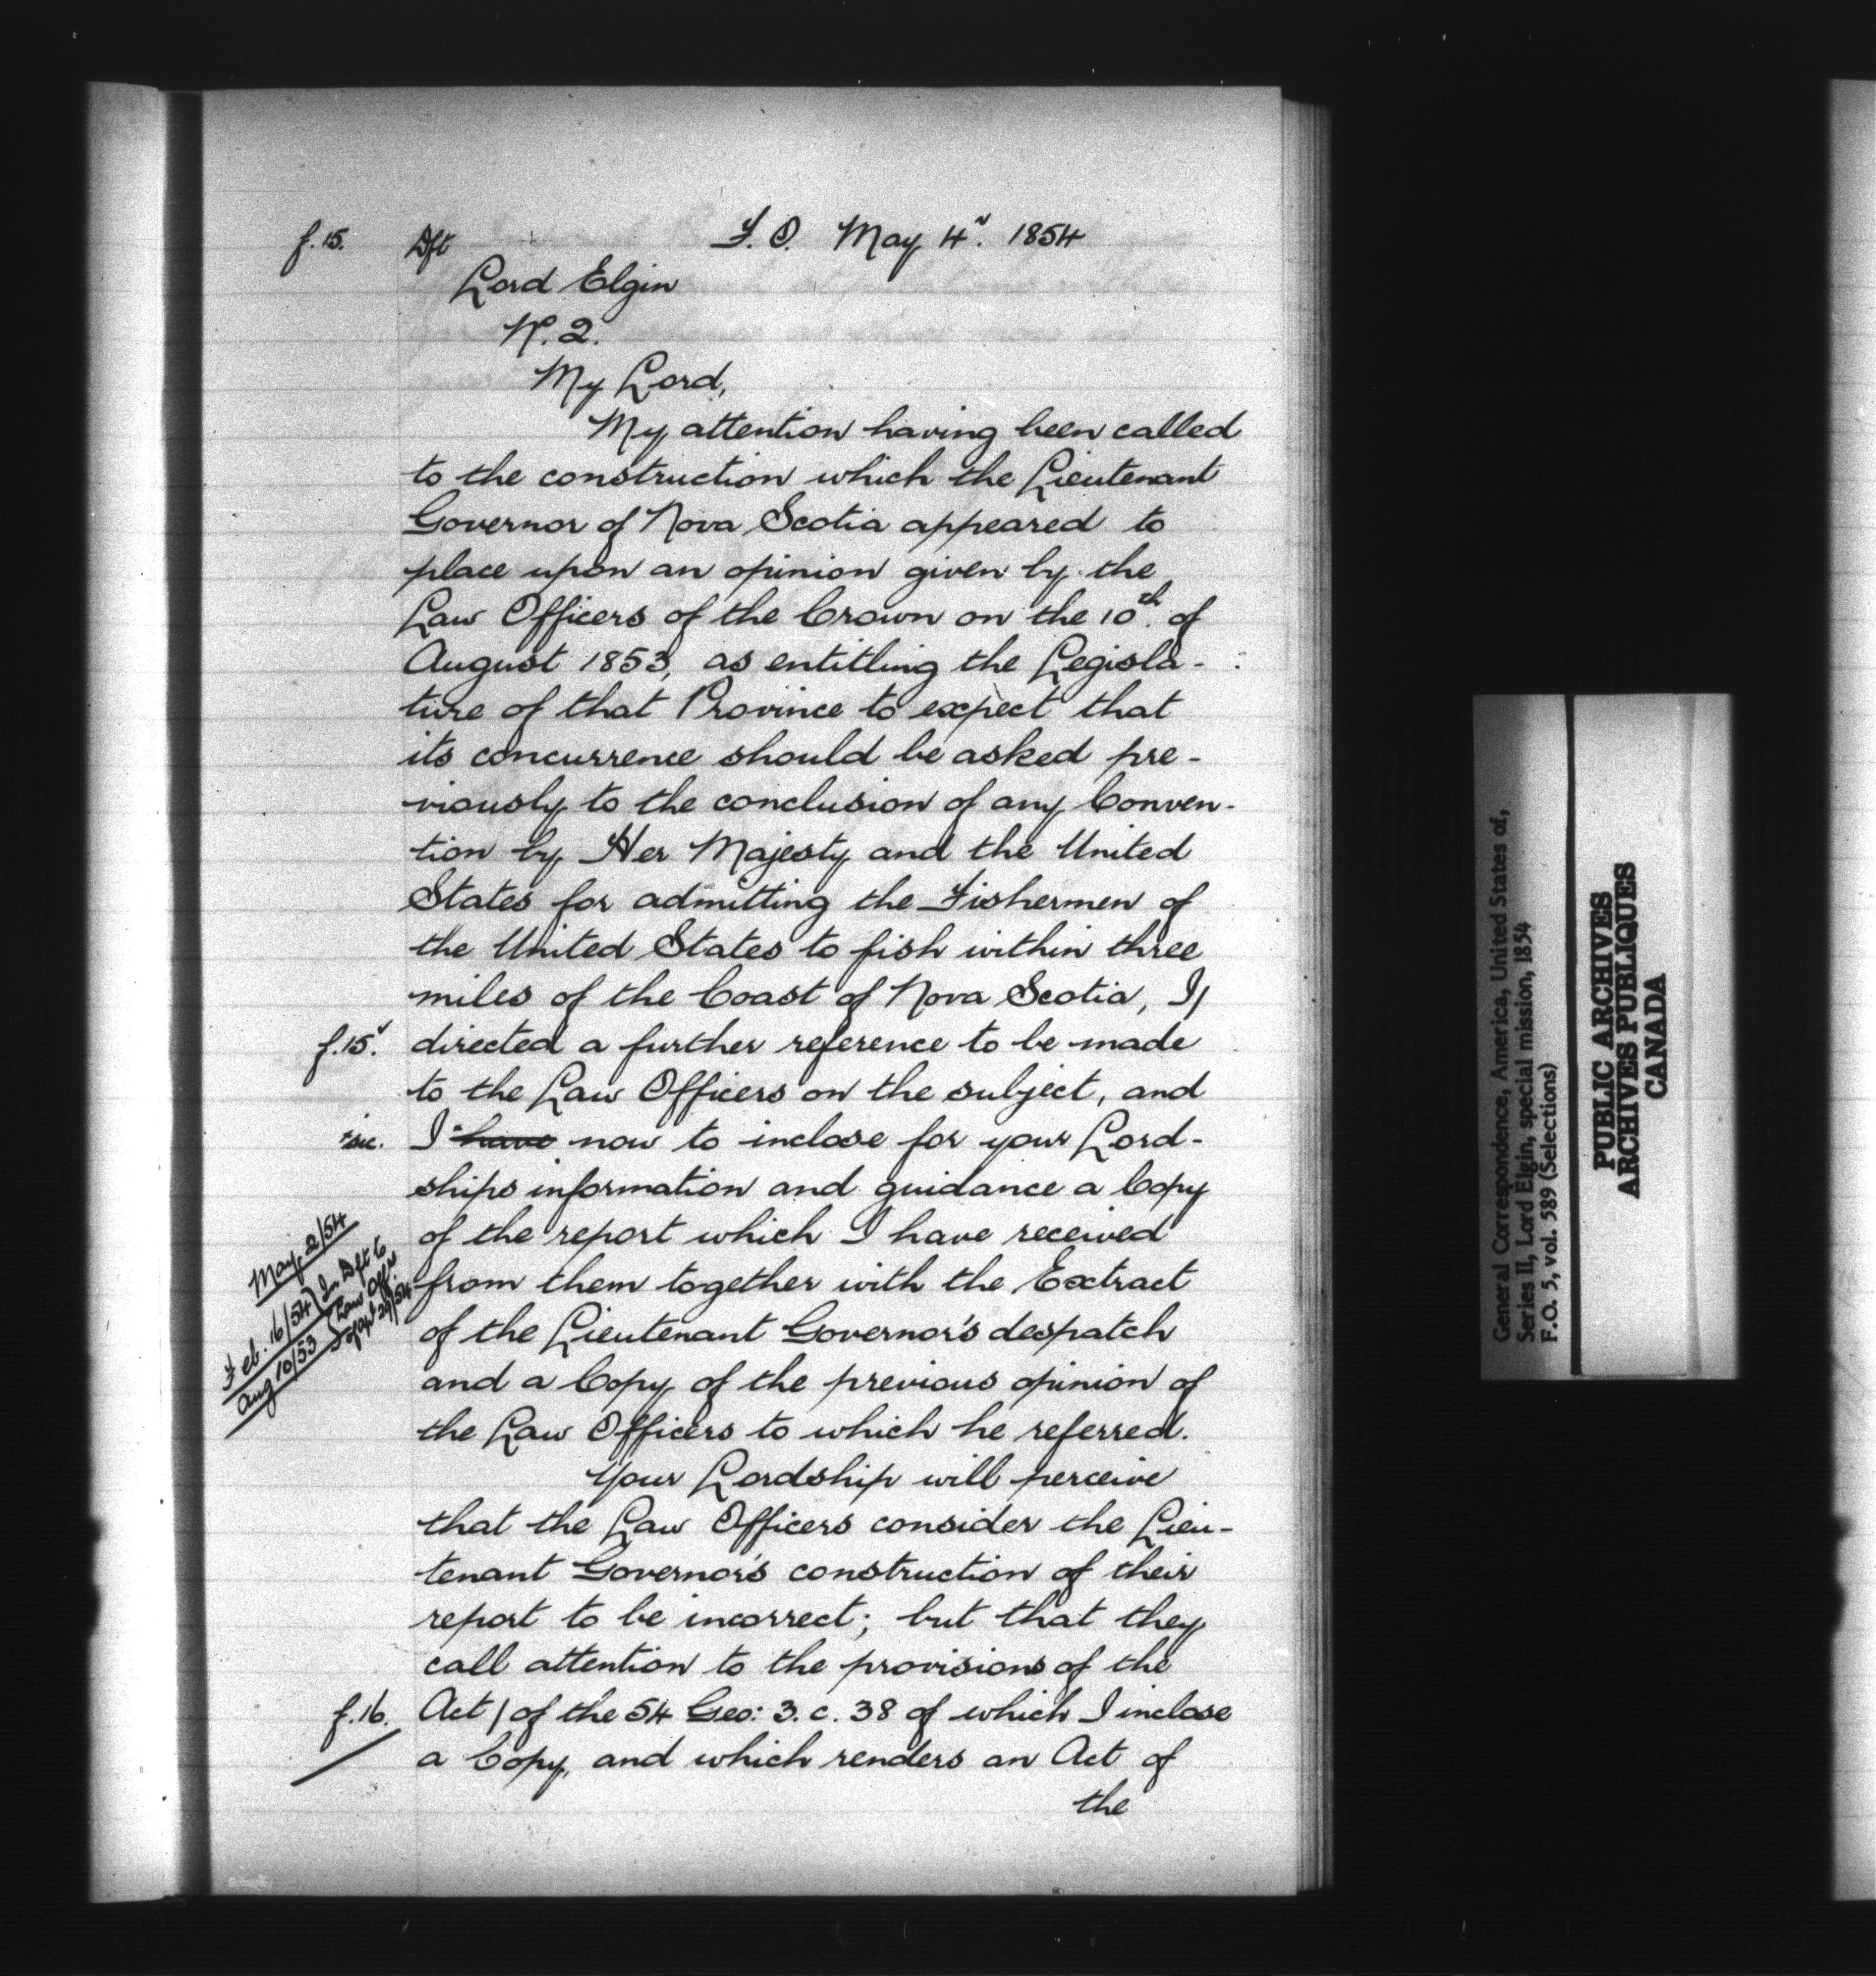 f.15. Dft F.O. May 4th. 1854
Lord Elgin
No. 2.
My Lord,
My attention having been called
to the construction which the Lieutenant
Governor of Nova Scotia appeared to
place upon an opinion given by the
Law Officers of the Crown on the 10th. of
August 1853, as entitling the Legisla-
ture of that Province to expect that
its concurrence should be asked pre-
viously to the conclusion of any Conven-
tion by Her Majesty and the United
States for admitting the Fishermen of
the United States to fish within three
miles of the Coast of Nova Scotia, I/
f.15v. directed a further reference to be made
to the Law Officers on the subject, and
*sic. I *have now to inclose for your Lord-
ships information and guidance a Copy
May 2/54 of the report which I have received
Feb. 16/54 } In Dft to from them together with the Extract
Aug 10/53 } Law Offrs of Apl 29/54 of the Lieutenant Governor's despatch
and a Copy of the previous opinion of
the Law Officers to which he referred.
Your Lordship will perceive
that the Law Officers consider the Lieu-
tenant Governor's construction of their
report to be incorrect; but that they
call attention to the provisions of the
f.16. Act / of the 54 Geo: 3. c. 38 of which I inclose
a Copy, and which renders an Act of
the
General Correspondence, America, United States of,
Series II, Lord Elgin, special mission, 1854
F.O. 5, vol. 589 (Selections)
PUBLIC ARCHIVES
ARCHIVES PUBLIQUES
CANADA